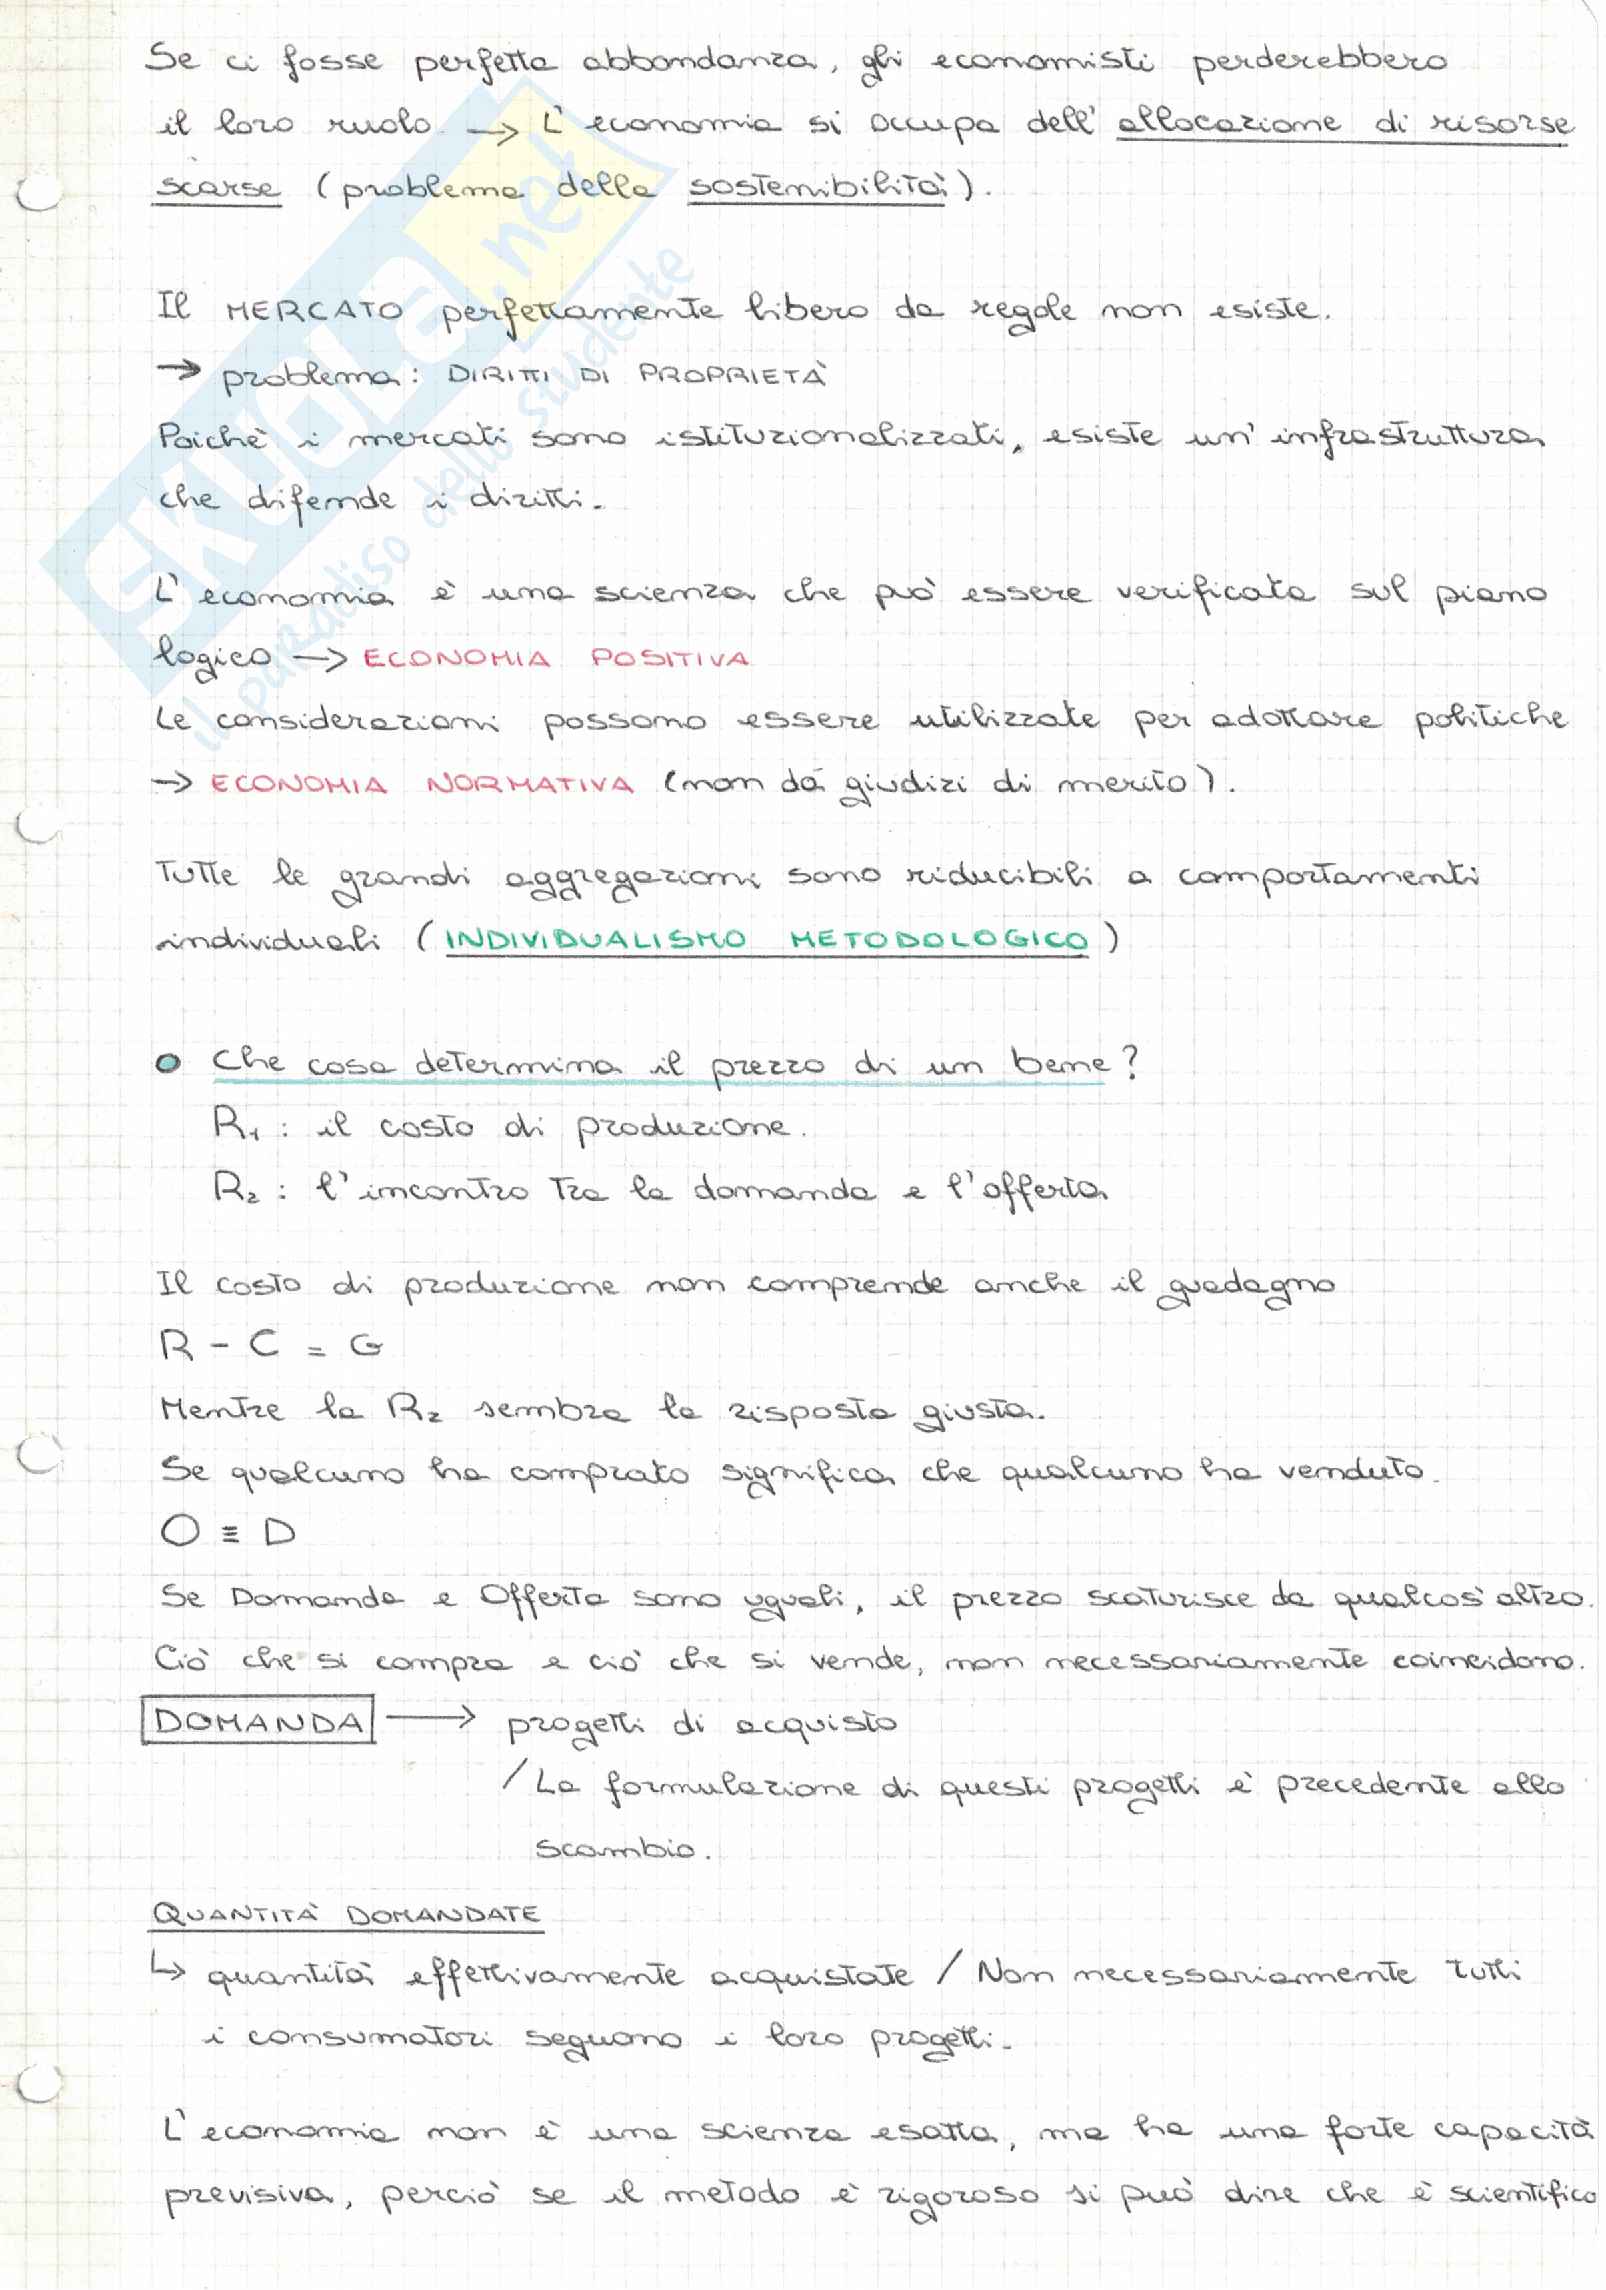 Se ci fosse perfetta abbondanza, gli economisti perderebbero
il loro ruolo. → L'economia si occupa dell'allocazione di risorse
scarse (problema della sostenibilità).
Il MERCATO perfettamente libero da regole non esiste.
→ problema: DIRITTI DI PROPRIETÀ
Poichè i mercati sono istituzionalizzati, esiste un'infrastruttura
che difende i diritti.
L'economia è una scienza che può essere verificata sul piano
logico → ECONOMIA POSITIVA
Le considerazioni possono essere utilizzate per adottare politiche
→ ECONOMIA NORMATIVA (non dà giudizi di merito).
Tutte le grandi aggregazioni sono riducibili a comportamenti
individuali (INDIVIDUALISMO METODOLOGICO)
Che cosa determina il prezzo di un bene?
R₁ : il costo di produzione.
R₂ : l'incontro tra la domanda e l'offerta
Il costo di produzione non comprende anche il guadagno
R - C = G
Mentre la R₂ sembra la risposta giusta.
Se qualcuno ha comprato significa che qualcuno ha venduto.
O ≡ D
Se Domanda e Offerta sono uguali, il prezzo scaturisce da qualcos'altro.
Ciò che si compra e ciò che si vende, non necessariamente coincidono.
DOMANDA → progetti di acquisto
/ La formulazione di questi progetti è precedente allo
scambio.
QUANTITÀ DOMANDATE
↳ quantità effettivamente acquistate / Non necessariamente tutti
i consumatori seguono i loro progetti.
L'economia non è una scienza esatta, ma ha una forte capacità
previsiva, perciò se il metodo è rigoroso si può dire che è scientifico
SKUOLA.net
il paradiso dello studente